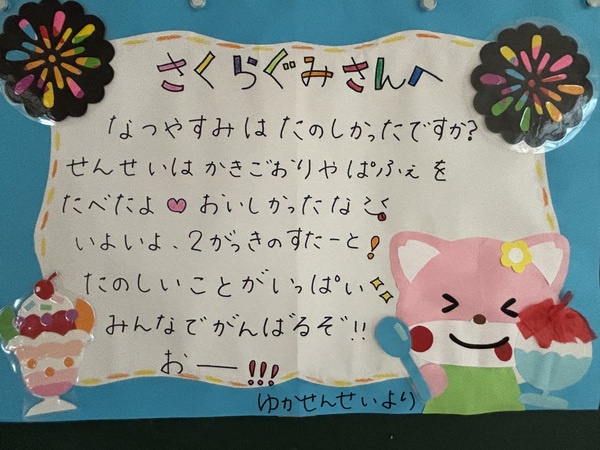 さくらぐみさんへ
なつやすみは たのしかったですか?
せんせいは かきごおりや ぱふぇ を
たべたよ♥ おいしかったな
いよいよ、2がっきのすたーと!
たのしいことがいっぱい
みんなでがんばるぞ!!
おー!!!
ゆかせんせいより